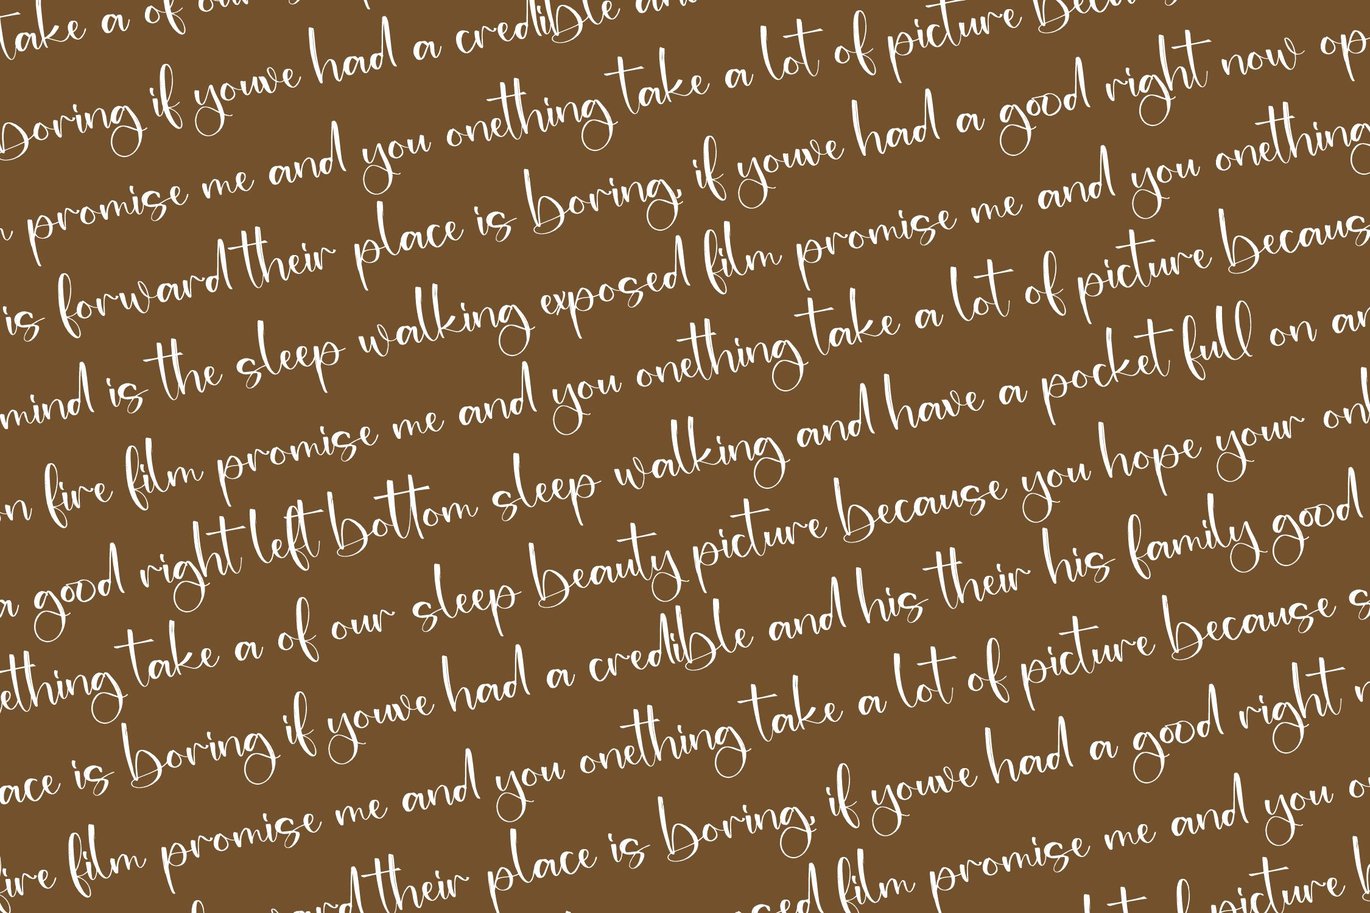 take a of our
boring if youve had a credible and
promise me and you onething take a lot of picture because
is forward their place is boring, if youve had a good right now op
mind is the sleep walking exposed film promise me and you onething
on fire film promise me and you onething take a lot of picture because
a good right left bottom sleep walking and have a pocket full on an
ething take a of our sleep beauty picture because you hope your onl
ace is boring if youve had a credible and his their his family good
fire film promise me and you onething take a lot of picture because s
ward their place is boring, if youve had a good right n
sed film promise me and you o
t of picture b